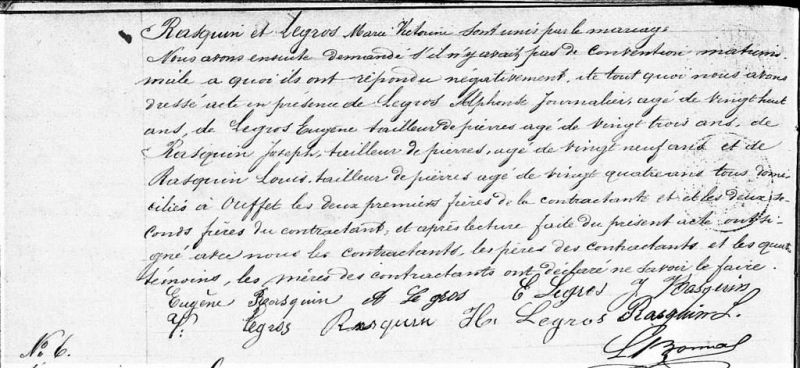 Rasquin et Legros Marie Victorine sont unis par le mariage
Nous avons ensuite demandé s'il n'y avait pas de convention matrimo-
niale a quoi ils ont répondu negativement, de tout quoi nous avons
dressé acte en présence de Legros Alphonse Journalier, agé de vingt huit
ans, de Legros Eugène tailleur de pierres agé de vingt trois ans, de
Rasquin Joseph, tailleur de pierres, agé de vingt neuf ans et de
Rasquin Louis, tailleur de pierres agé de vingt quatre ans tous domi-
ciliés à Ouffet les deux premiers frères de la contractante et et les deux se-
conds frères du contractant; et après lecture faite du présent acte ont si-
gné avec nous les contractants, les pères des contractants et les quatre
témoins, les mères des contractants ont déclaré ne savoir le faire.
Eugène Rasquin A Legros E Legros J Rasquin
Legros Rasquin H. Legros Rasquin L.
No 6.